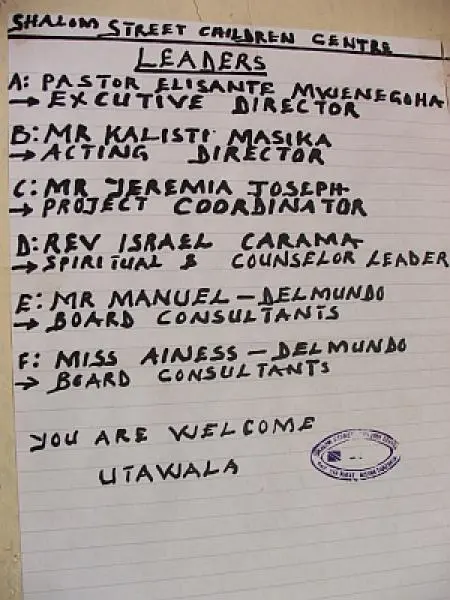 SHALOM STREET CHILDREN CENTRE
LEADERS
A: PASTOR ELISANTE MWENEGOHA
→ EXCUTIVE DIRECTOR
B: MR KALISTI MASIKA
→ ACTING DIRECTOR
C: MR JEREMIA JOSEPH
→ PROJECT COORDINATOR
D: REV ISRAEL CARAMA
→ SPIRITUAL & COUNSELOR LEADER
E: MR MANUEL - DELMUNDO
→ BOARD CONSULTANTS
F: MISS AINESS - DELMUNDO
→ BOARD CONSULTANTS
YOU ARE WELCOME
UTAWALA